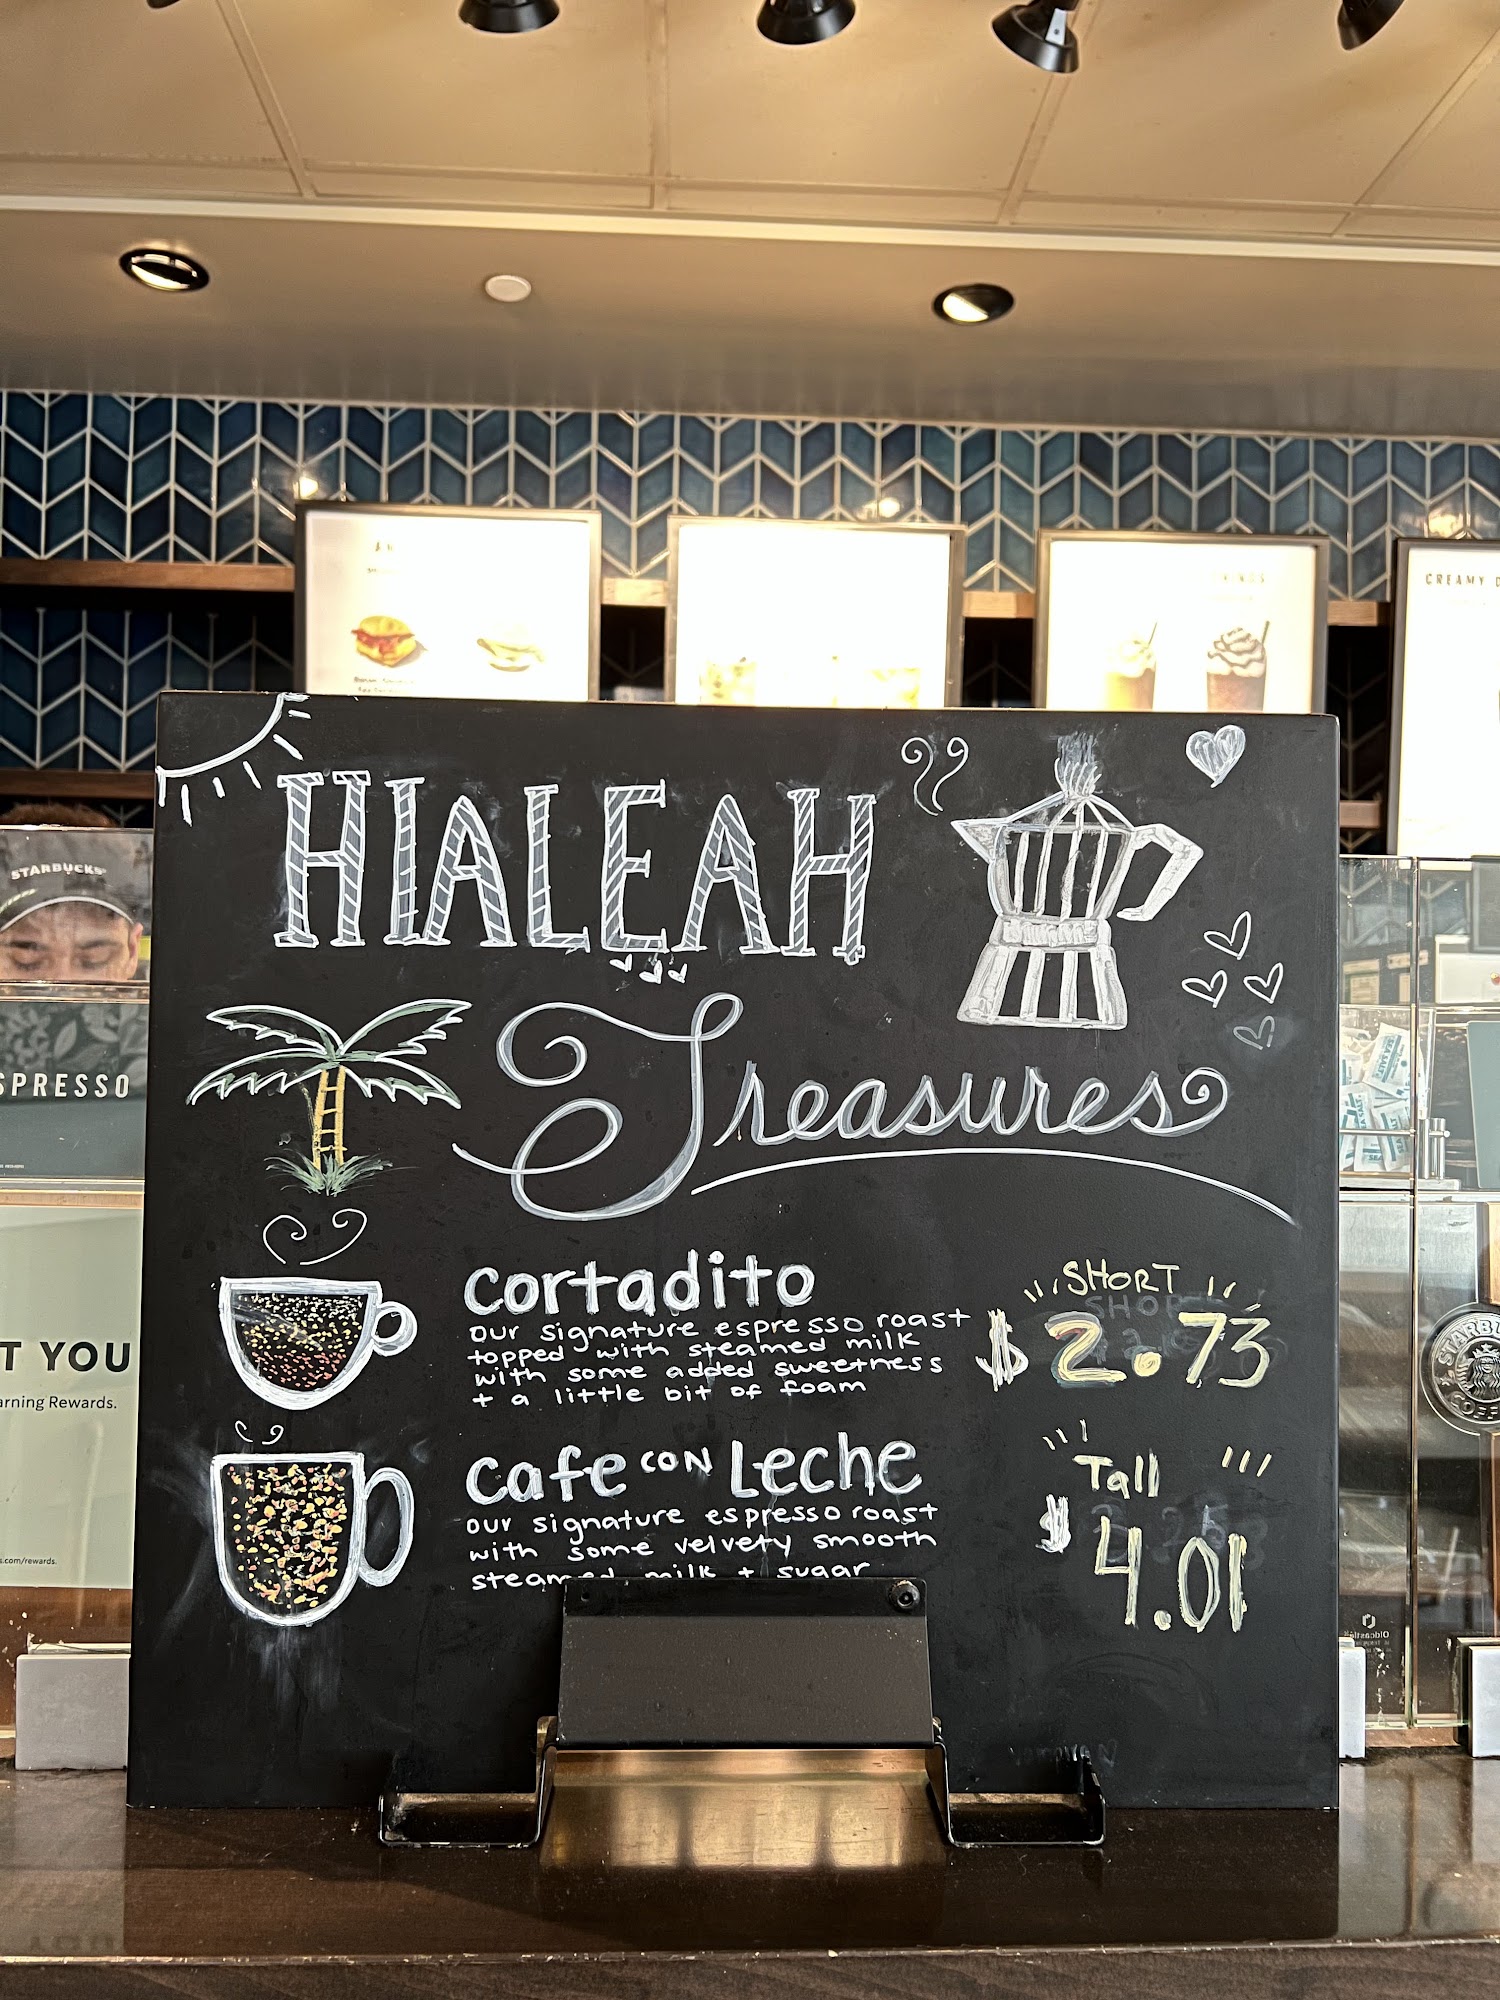 CREAMY
STARBUCKS
HIALEAH
Treasures
SPRESSO
Cortadito
our signature espresso roast
topped with steamed milk
with some added sweetness
+ a little bit of foam
SHORT
$2.73
T YOU
arning Rewards.
Cafe con Leche
our signature espresso roast
with some velvety smooth
steamed milk + sugar
Tall
$4.01
s.com/rewards.
Oldcastle